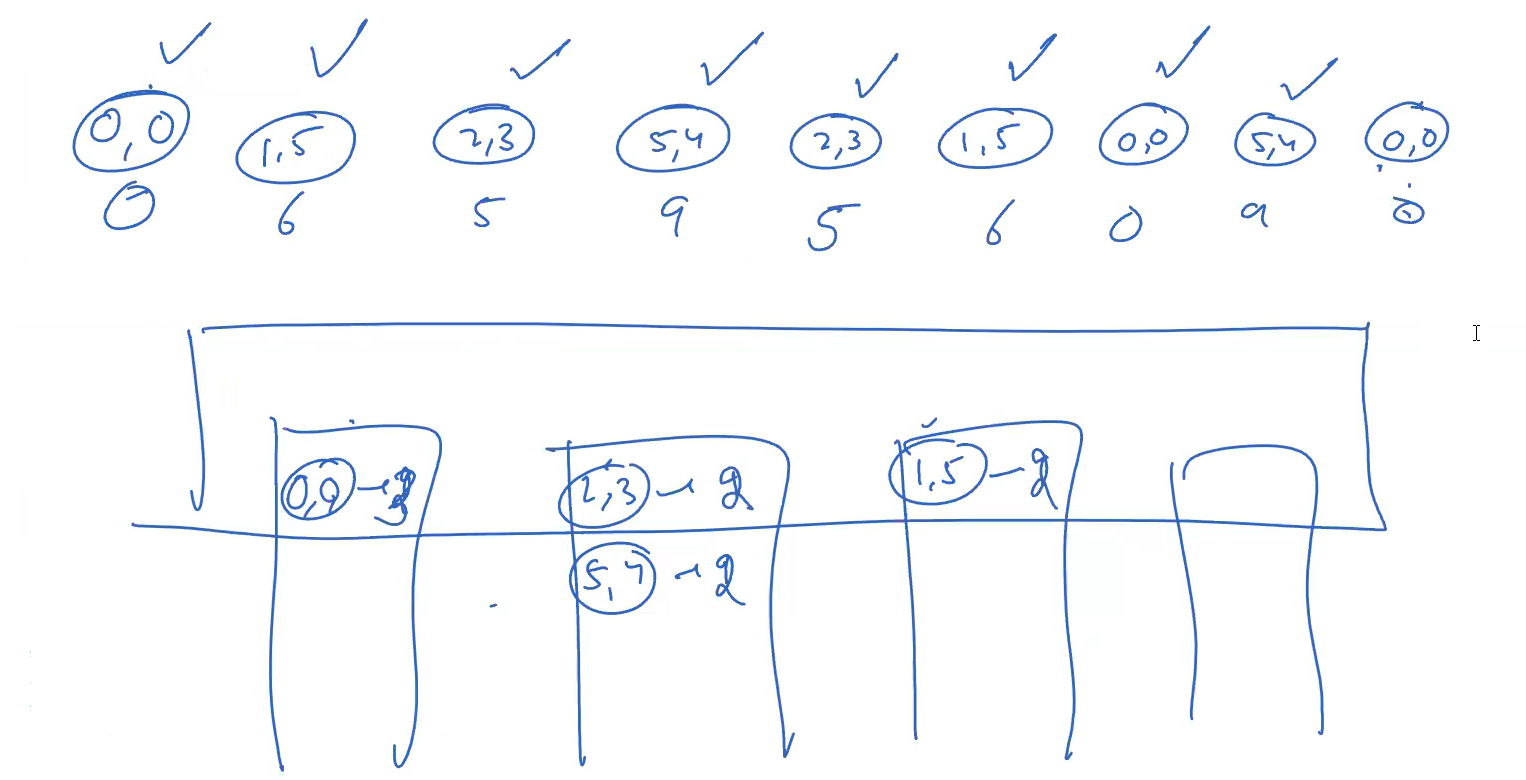 0,0 1,5 2,3 5,4 2,3 1,5 0,0 5,4 0,0
0 6 5 9 5 6 0 9 0
0,0 → 3 2,3 → 2 1,5 – 2
5,4 → 2